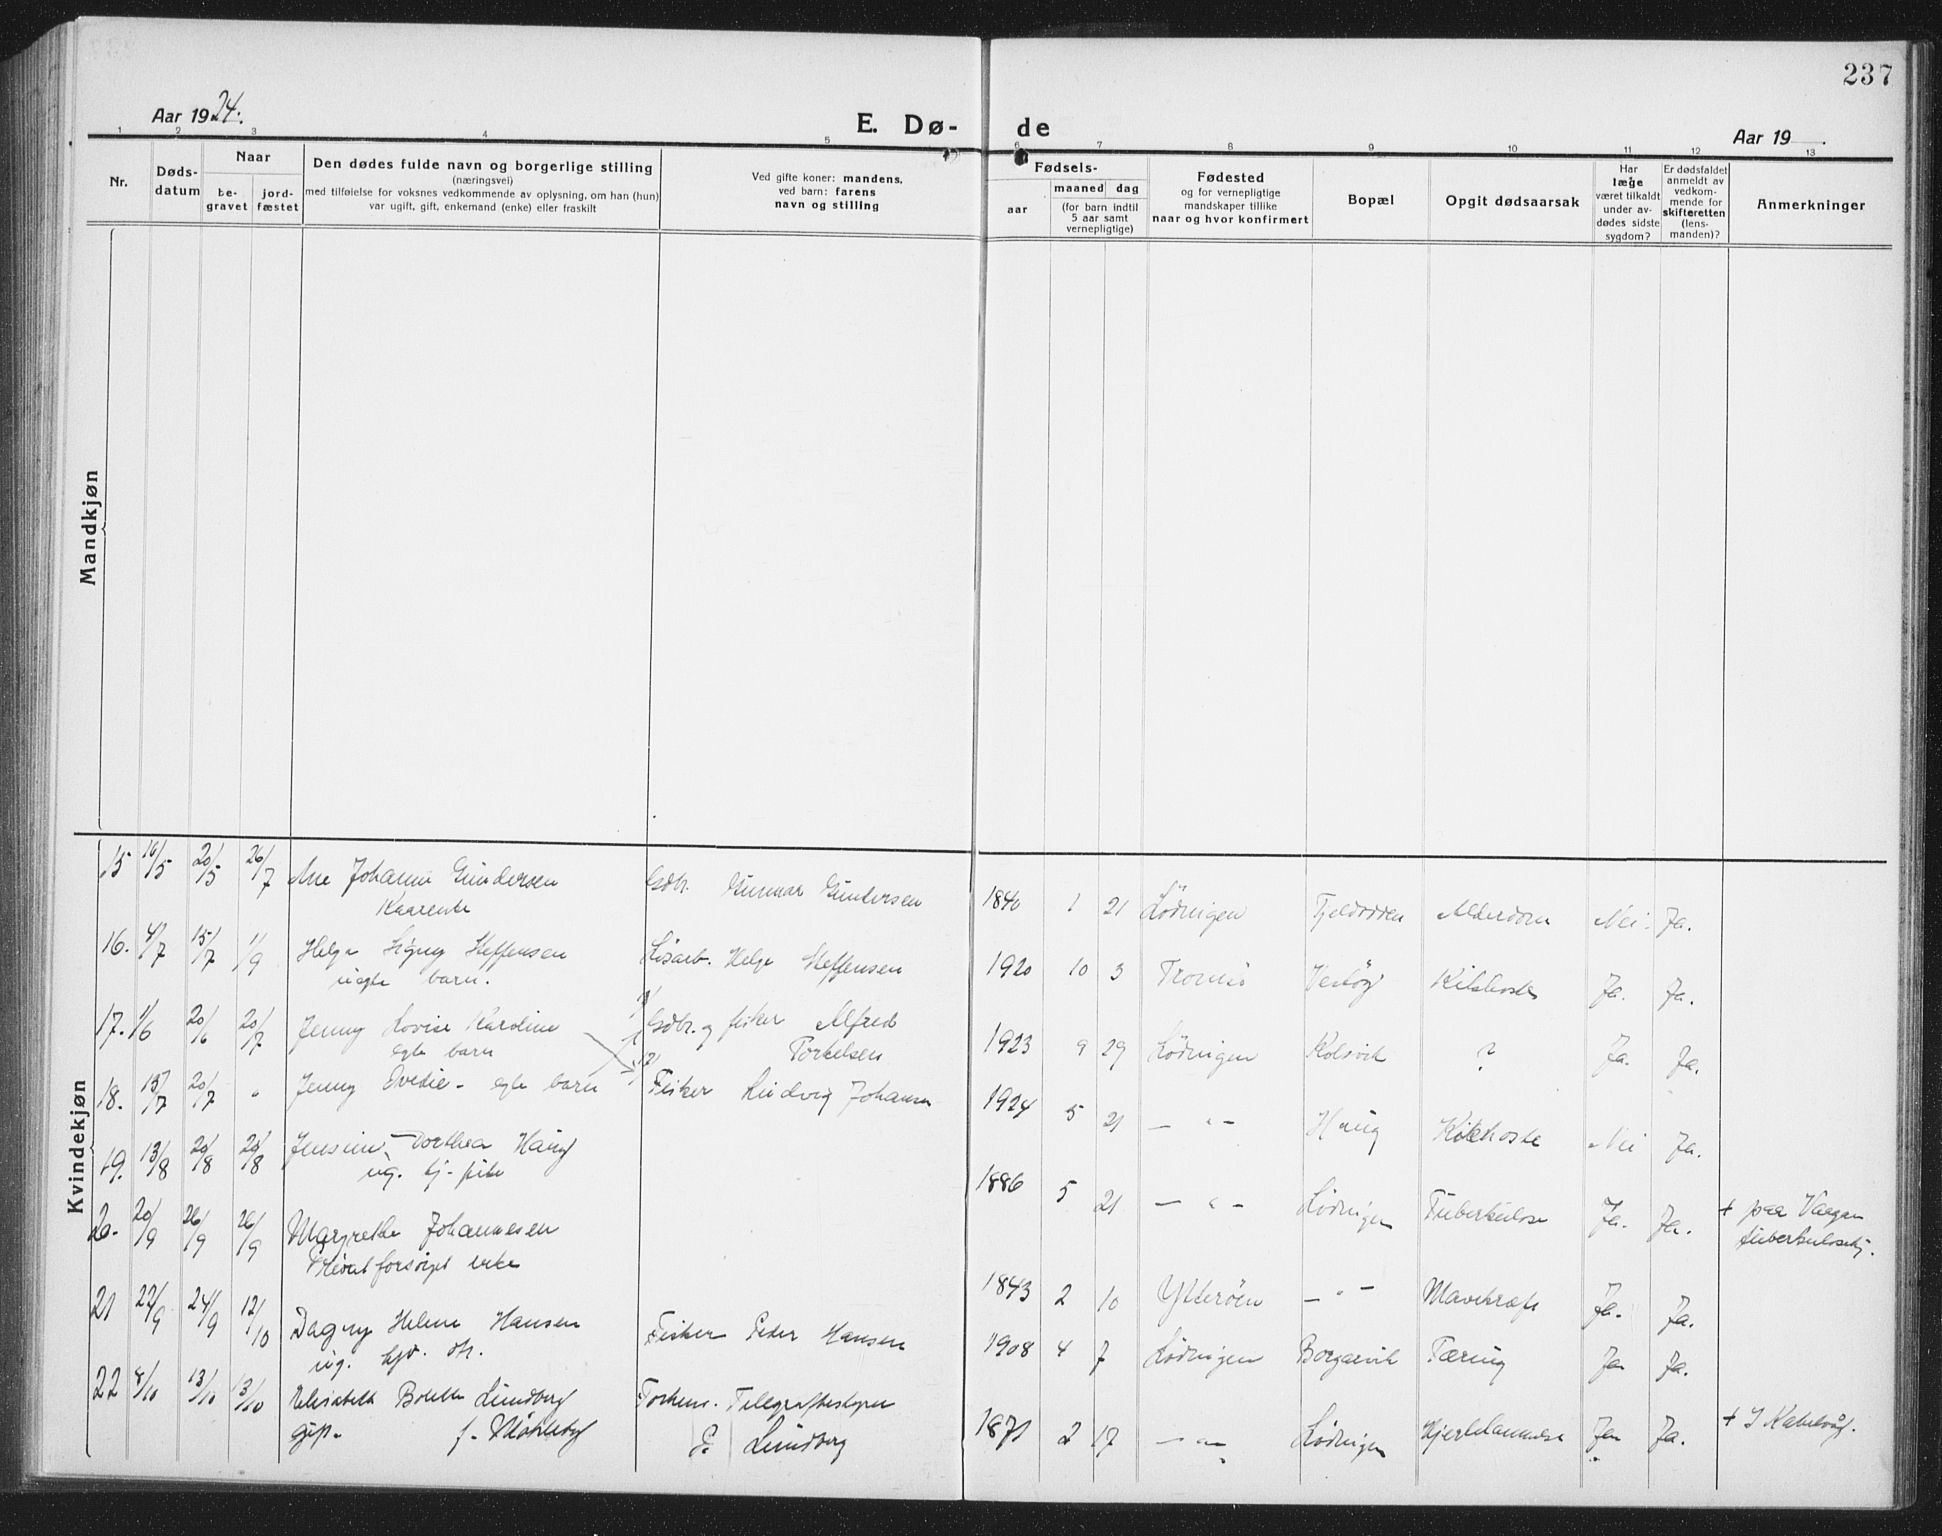 237
Aar 1924.
E. Dø-
de
Aar 19 .
1 2 3 4 5 6 7 8 9 10 11 12 13
Nr.
Døds-
datum
Naar
be-
gravet
jord-
fæstet
Den dødes fulde navn og borgerlige stilling
(næringsvei)
med tilføielse for voksnes vedkommende av oplysning, om han (hun)
var ugift, gift, enkemand (enke) eller fraskilt
Ved gifte koner: mandens,
ved barn: farens
navn og stilling
Fødsels-
aar
maaned dag
(for barn indtil
5 aar samt
vernepligtige)
Fødested
og for vernepligtige
mandskaper tillike
naar og hvor konfirmert
Bopæl
Opgit dødsaarsak
Har
læge
været tilkaldt
under av-
dødes sidste
sygdom?
Er dødsfaldet
anmeldt av
vedkom-
mende for
skifteretten
(lens-
manden)?
Anmerkninger
Mandkjøn
Kvindekjøn
15 16/5 20/5 26/7 Ane Johanne Gundersen Gdbr. Gunnar Gundersen 1840 1 21 Lødingen Fjeldodden Alderdom Nei. Ja.
Kaarenke
16. 4/7 15/7 1/9 Helga Signy Steffensen Løsarb. Helge Steffensen 1920 10 3 Tromsø Vestøy Kikhoste Ja. Ja.
uegte barn.
17. 1/6 20/6 20/7 Jenny Lovise Karoline Gdbr. og fisker Alfred 1923 9 29 Lødingen Kolsvik ? Ja. Ja.
egte barn Torkelsen
18. 15/7 20/7 " Jenny Ovedie - egte barn Fisker Ludvig Johansen 1924 5 21 — " — Haug Kikhoste Nei Ja.
19. 13/8 20/8 20/8 Jensine Dorthea Haug 1886 5 21 — " — Lødingen Tuberkulose Ja. Ja. + paa Vaagan
ug. tj-pike tuberkulosehj.
20. 20/9 26/9 26/9 Margrethe Johannesen 1843 2 10 Ytterøen — " — Mavekræft Ja. Ja.
Privat forsørget enke
21 22/9 24/9 12/10 Dagny Helene Hansen Fisker Peder Hansen 1908 4 7 Lødingen Borgarvik Tæring Ja Ja.
ug.
22 8/10 13/10 13/10 Elisabeth Bolette Lundberg Forhenv. Telegrafbestyrer 1871 2 17 — " — Lødingen Hjertelammelse Ja Ja. + I Kabelvåg.
gift. f. Lundberg